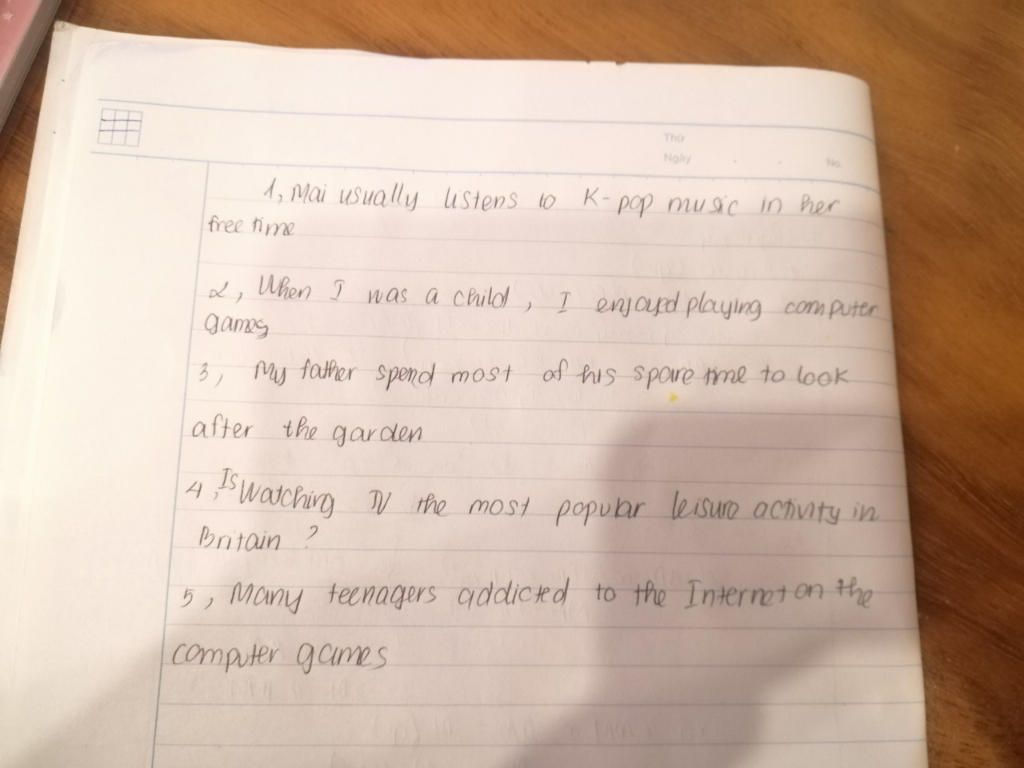 Thứ
Ngày . . No.
1, Mai usually listens to K-pop music in her
free time
2, When I was a child, I enjoyed playing computer
games
3, My father spend most of his spare time to look
after the garden
4, Is Watching TV the most popular leisure activity in
Britain ?
5, Many teenagers addicted to the Internet on the
computer games